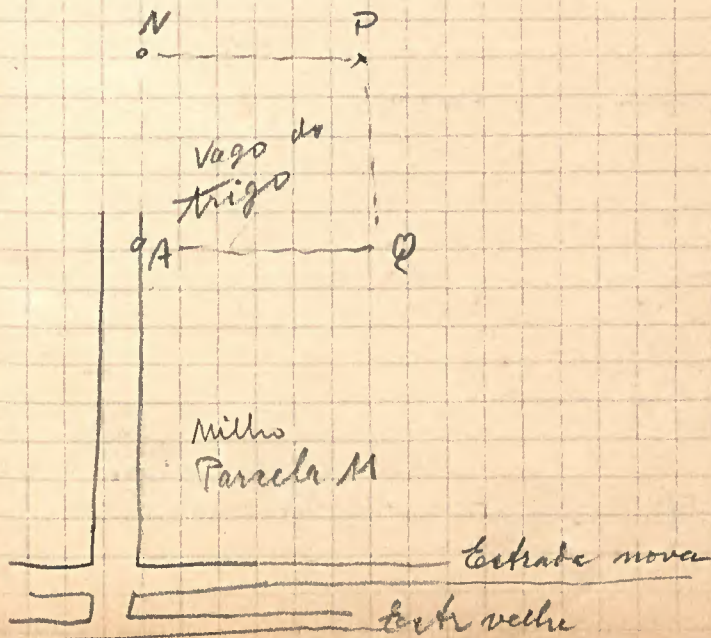 N P
Vago do
trigo
A Q
Milho
Parcela M
Estrada nova
Estr velha